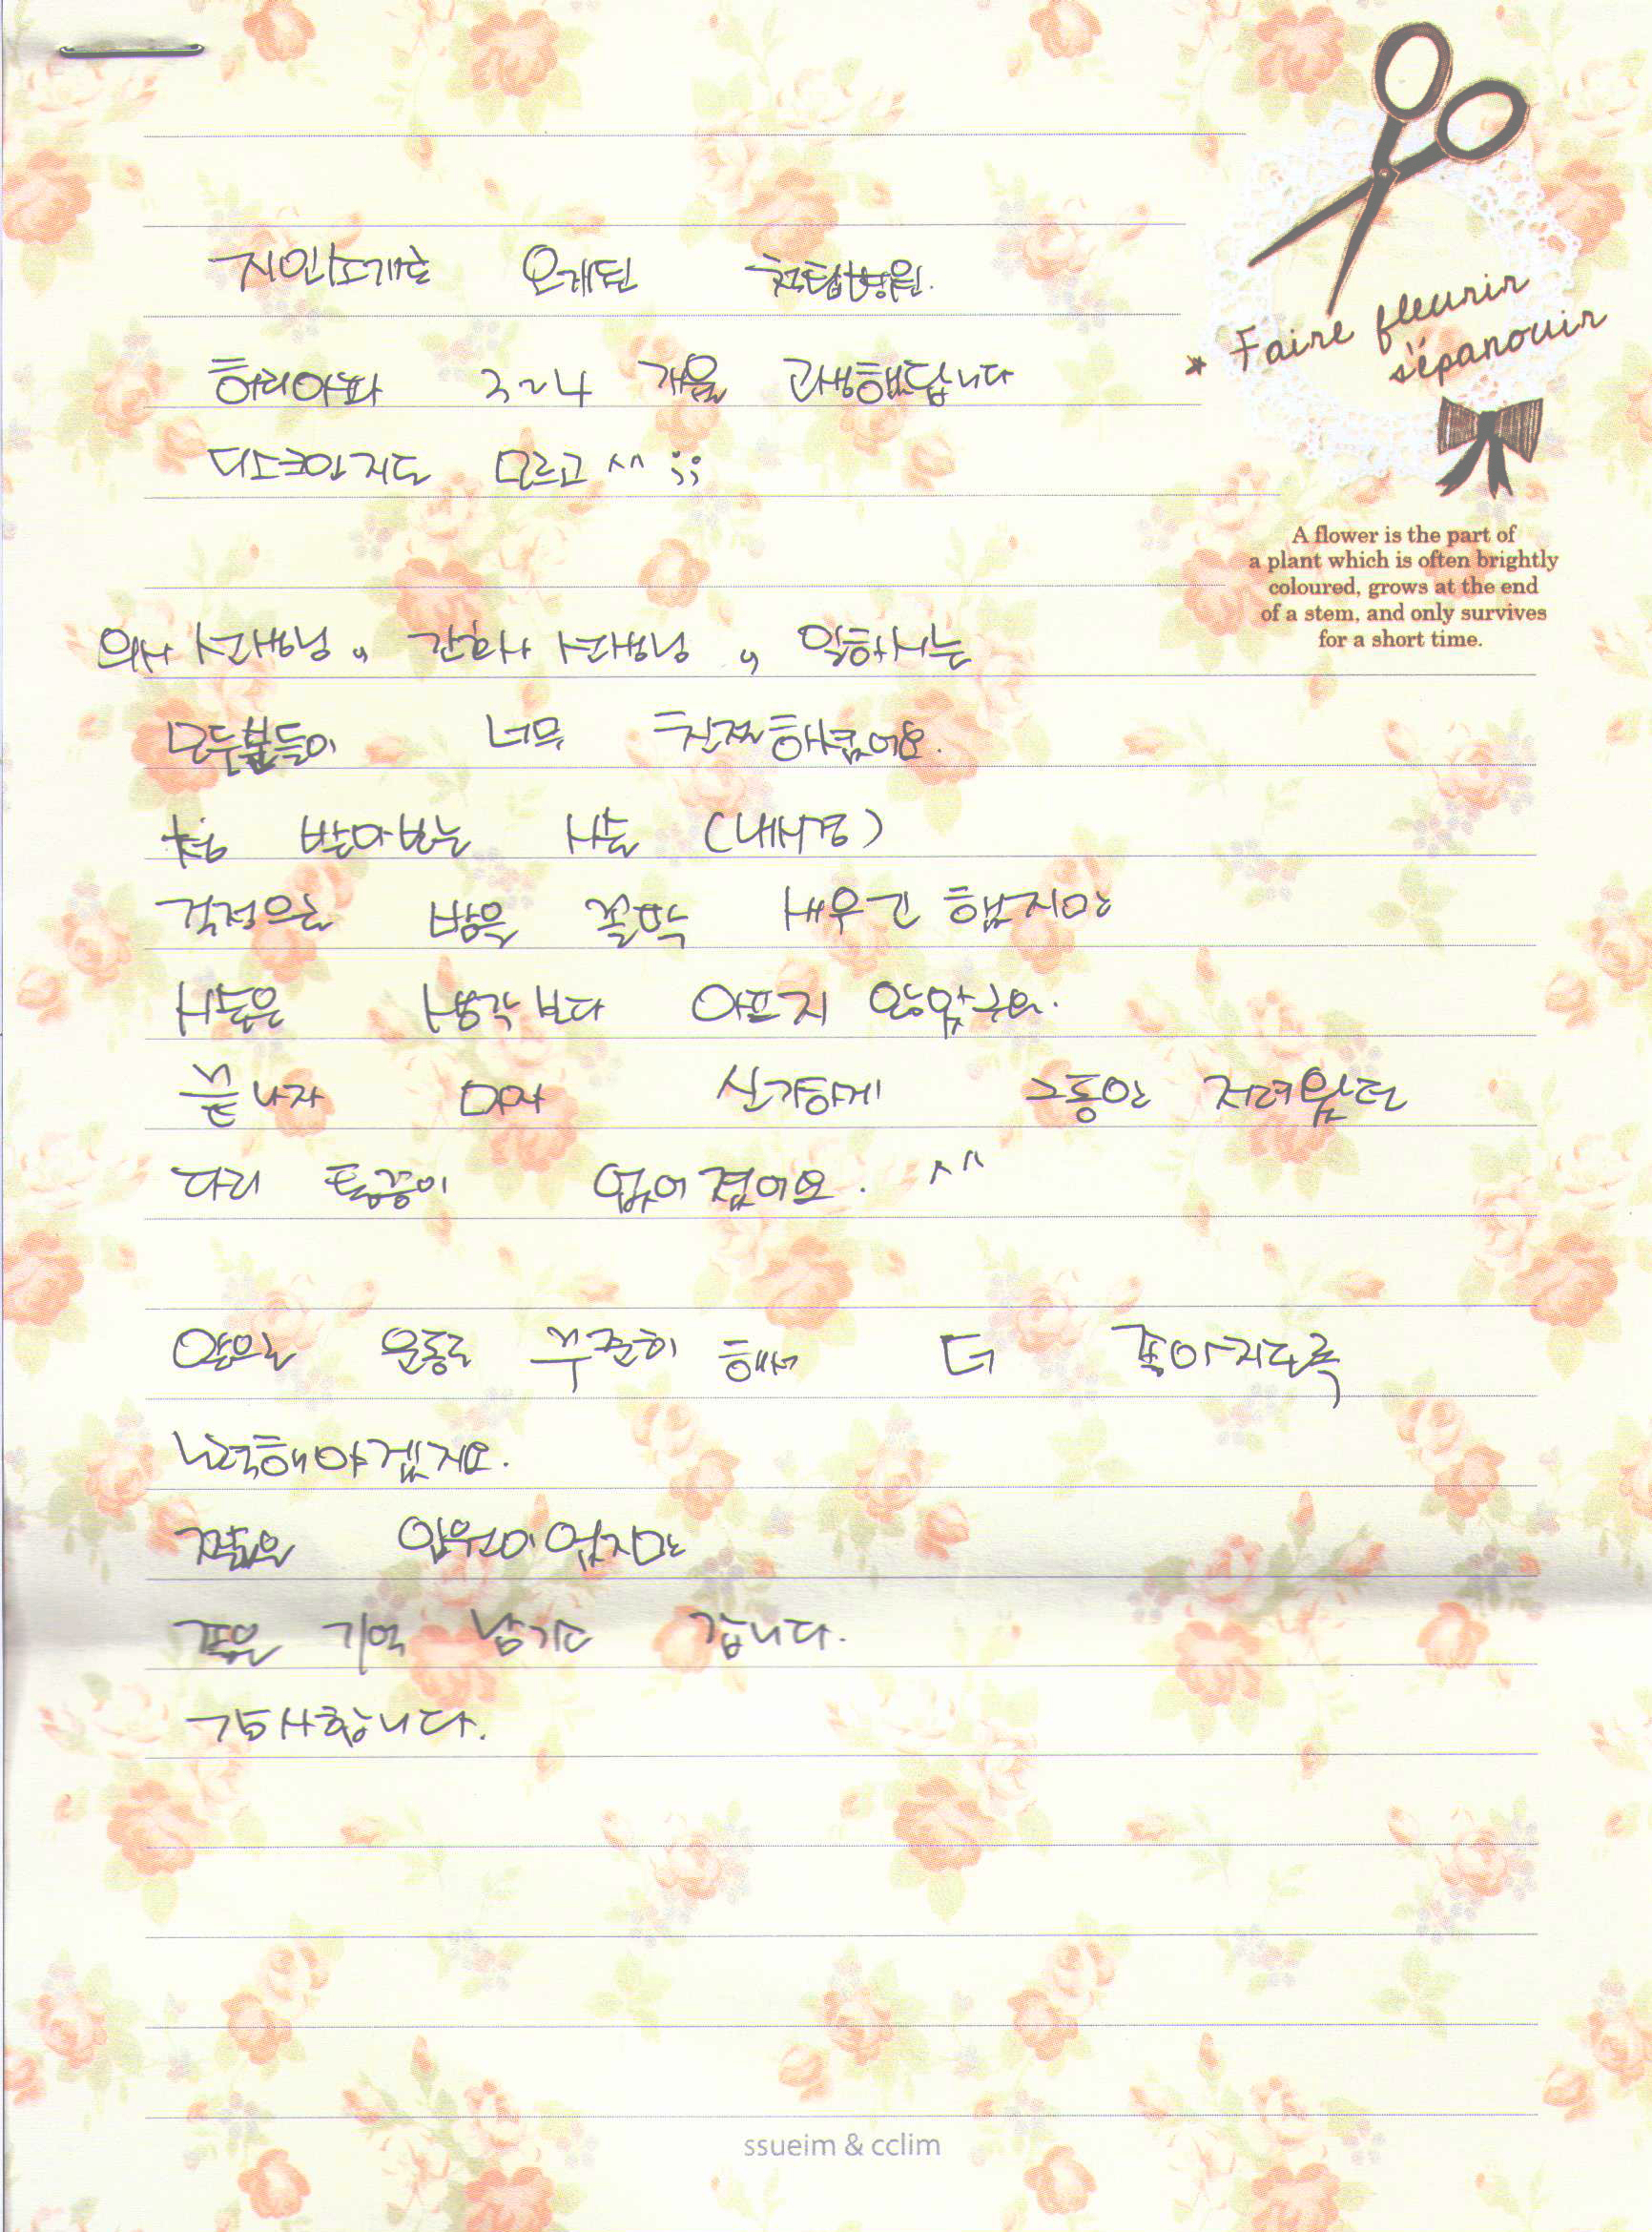 지인소개로 오게된 척탑병원.
허리아파 3~4 개월 고생했답니다
디스크인지도 모르고 ^^ ;;
의사 선생님, 간호사 선생님, 일하시는
모두분들이 너무 친절해셨어요.
첨 받아보는 시술 (내시경)
걱정으로 밤을 꼴딱 새우긴 했지만
시술은 생각보다 아프지 않았구요.
끝나자 마자 신기하게 그동안 저려왔던
다리 통증이 없어졌어요. ^^
앞으로 운동도 꾸준히 해서 더 좋아지도록
노력해야겠지요.
짧은 입원이었지만
좋은 기억 남기고 갑니다.
감사합니다.
* Faire fleurir
s'épanouir
A flower is the part of
a plant which is often brightly
coloured, grows at the end
of a stem, and only survives
for a short time.
ssueim & cclim